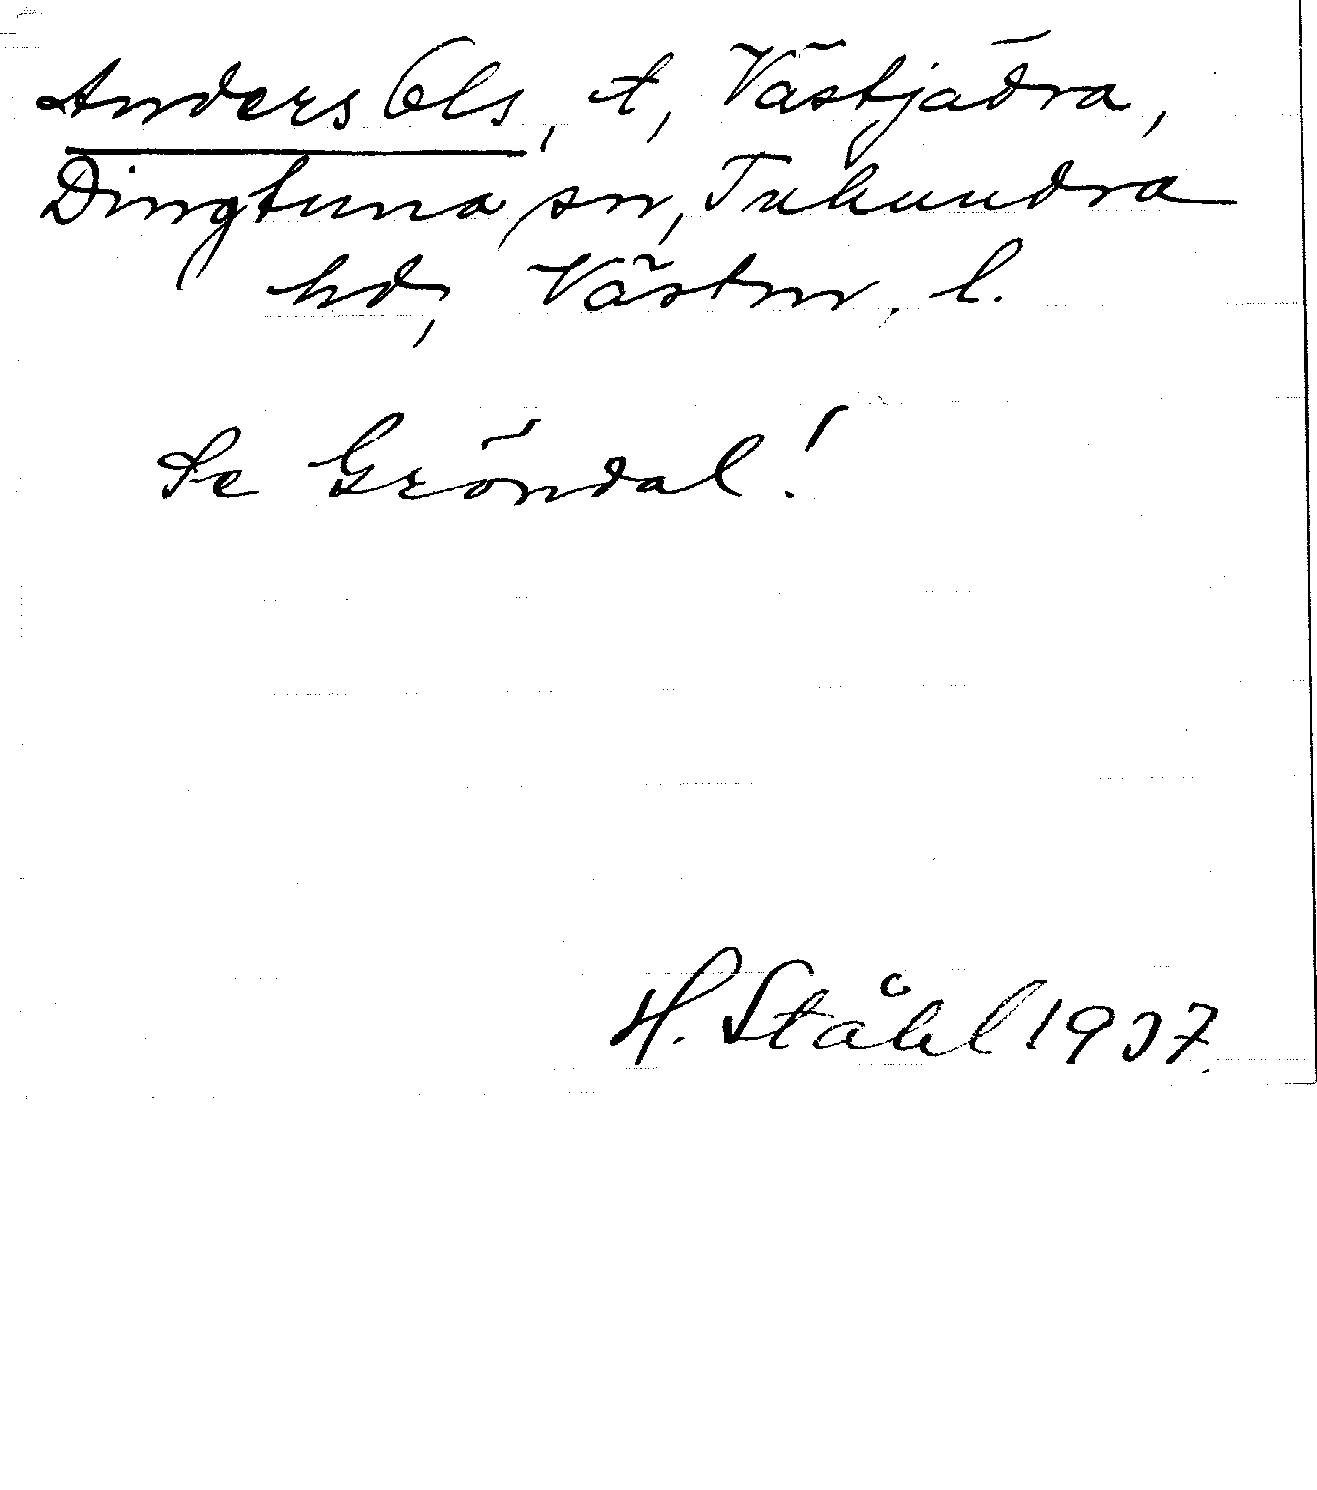 Anders Ols, t, Västjädra,
Dingtuna sn, Tuhundra
hd, Västm. l.
Se Gröndal!
H. Ståhl 1937.